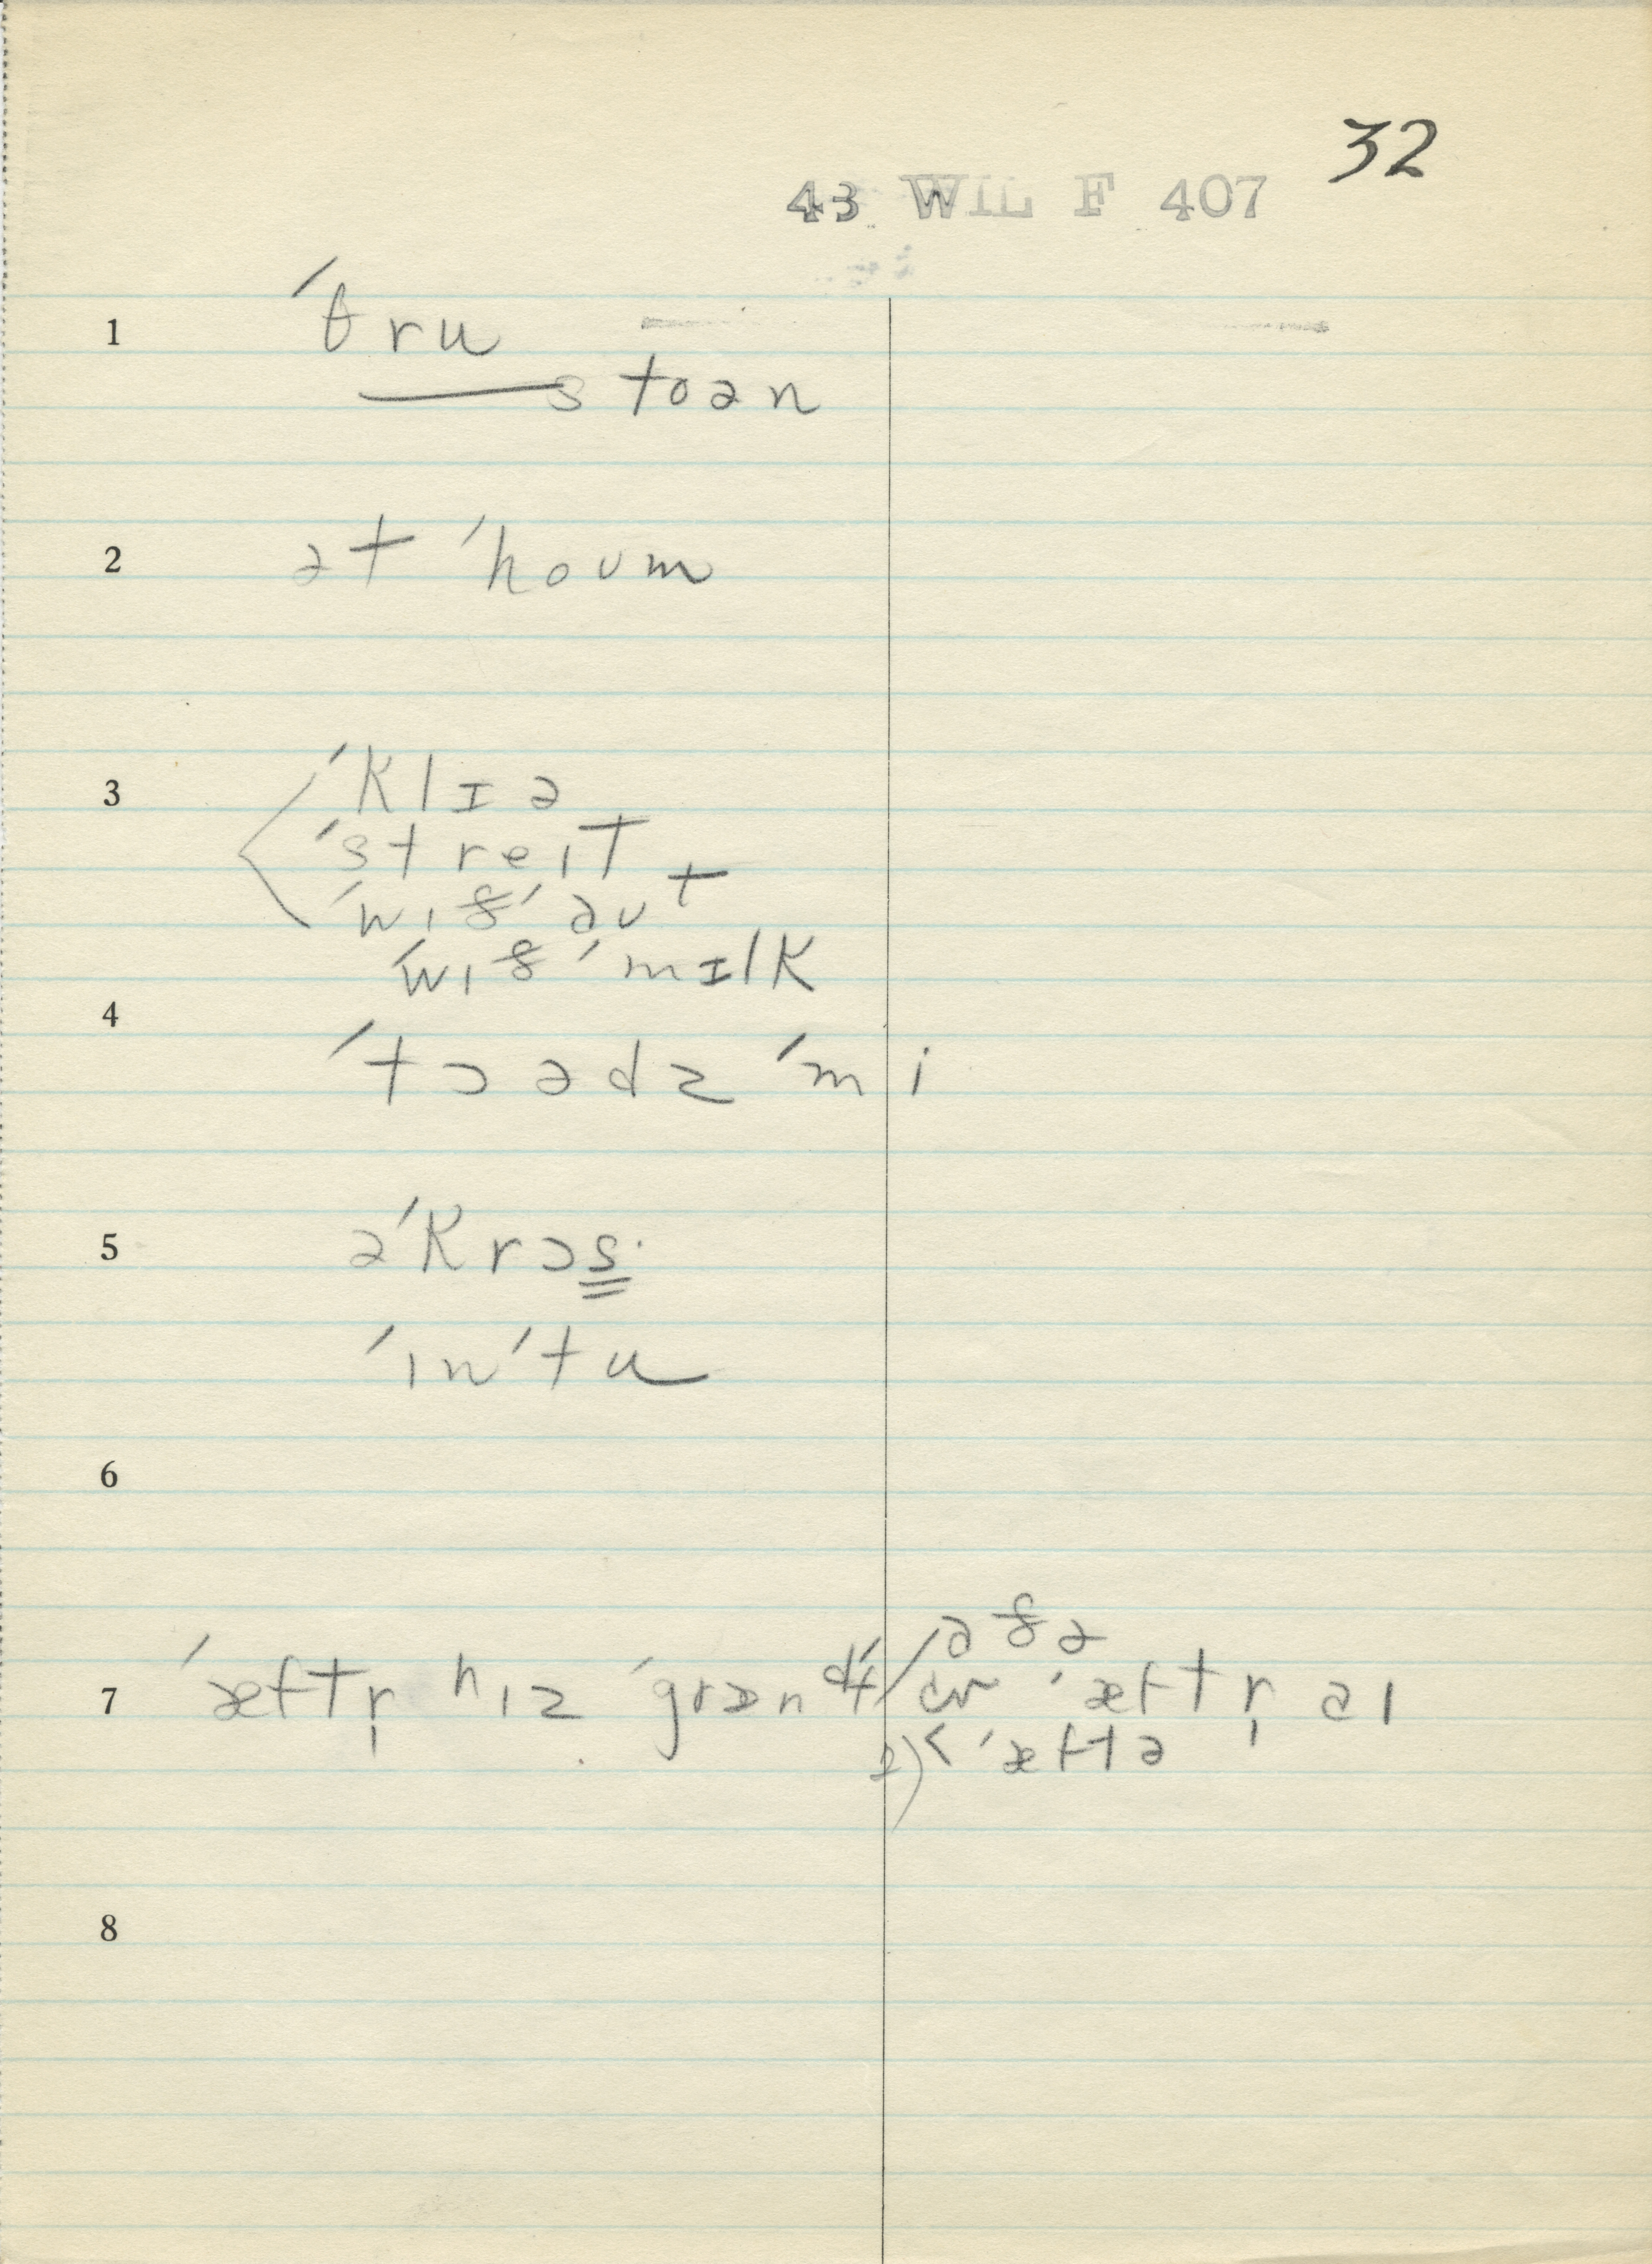 32
43 WIL F 407
1 ˈθru
stoən
2 ət ˈhoʊm
3 ˈklɪə
ˈstreɪt
ˈwɪðˈaʊt
ˈwɪð ˈmɪlk
4
ˈtɔədz ˈmi
5 əˈkrɔs
ˈɪnˈtu
6
7 ˈæftr̩ hɪz ˈgræn
ˈæftr̩
ˈæftə
8